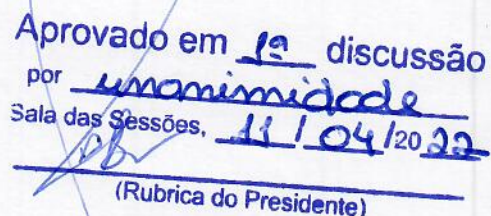 Aprovado em 1ª discussão
por unanimidade
Sala das Sessões, 11 / 04 /20 22
(Rubrica do Presidente)